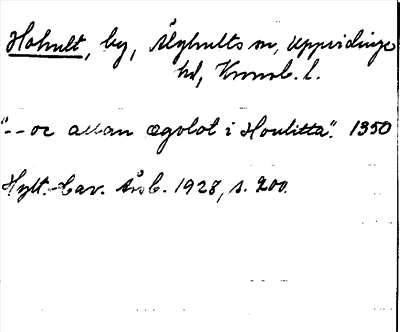 Hohult, by, Älghults sn, Uppvidinge
hd, Kronob. l.
"-- oc allan ægolot i Houlitta". 1350
Hylt.-Cav. Årsb. 1928, s. 200.